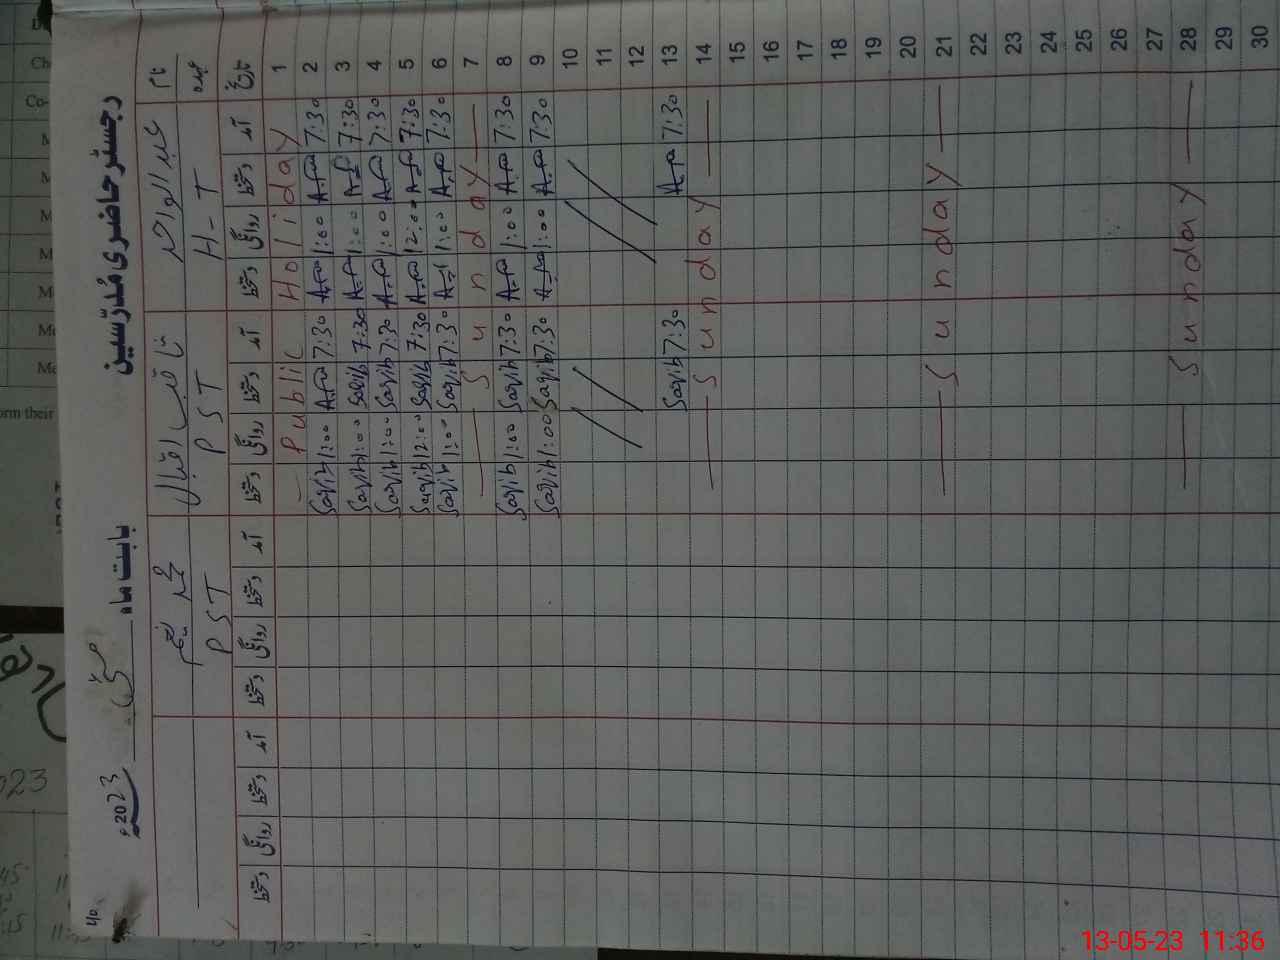 رجسٹر حاضری مُدرّسین بابت ماہ مئی 2023ء
نام عبدالواحد ثاقب اقبال محمد نعیم
عہدہ H-T PST PST
تاریخ آمد دستخط روانگی دستخط آمد دستخط روانگی دستخط آمد دستخط روانگی دستخط آمد دستخط روانگی دستخط
1 Public Holiday
2 7:30 1:00 7:30 1:00 Saqib
3 7:30 1:00 7:30 Saqib 1:00 Saqib
4 7:30 1:00 7:30 Saqib 1:00 Saqib
5 7:30 12:00 7:30 Saqib 12:00 Saqib
6 7:30 1:00 7:30 Saqib 1:00 Saqib
7 Sunday
8 7:30 1:00 7:30 Saqib 1:00 Saqib
9 7:30 1:00 7:30 Saqib 1:00 Saqib
10
11
12
13 7:30 7:30 Saqib
14 Sunday
15
16
17
18
19
20
21 Sunday
22
23
24
25
26
27
28 Sunday
29
30
13-05-23 11:36